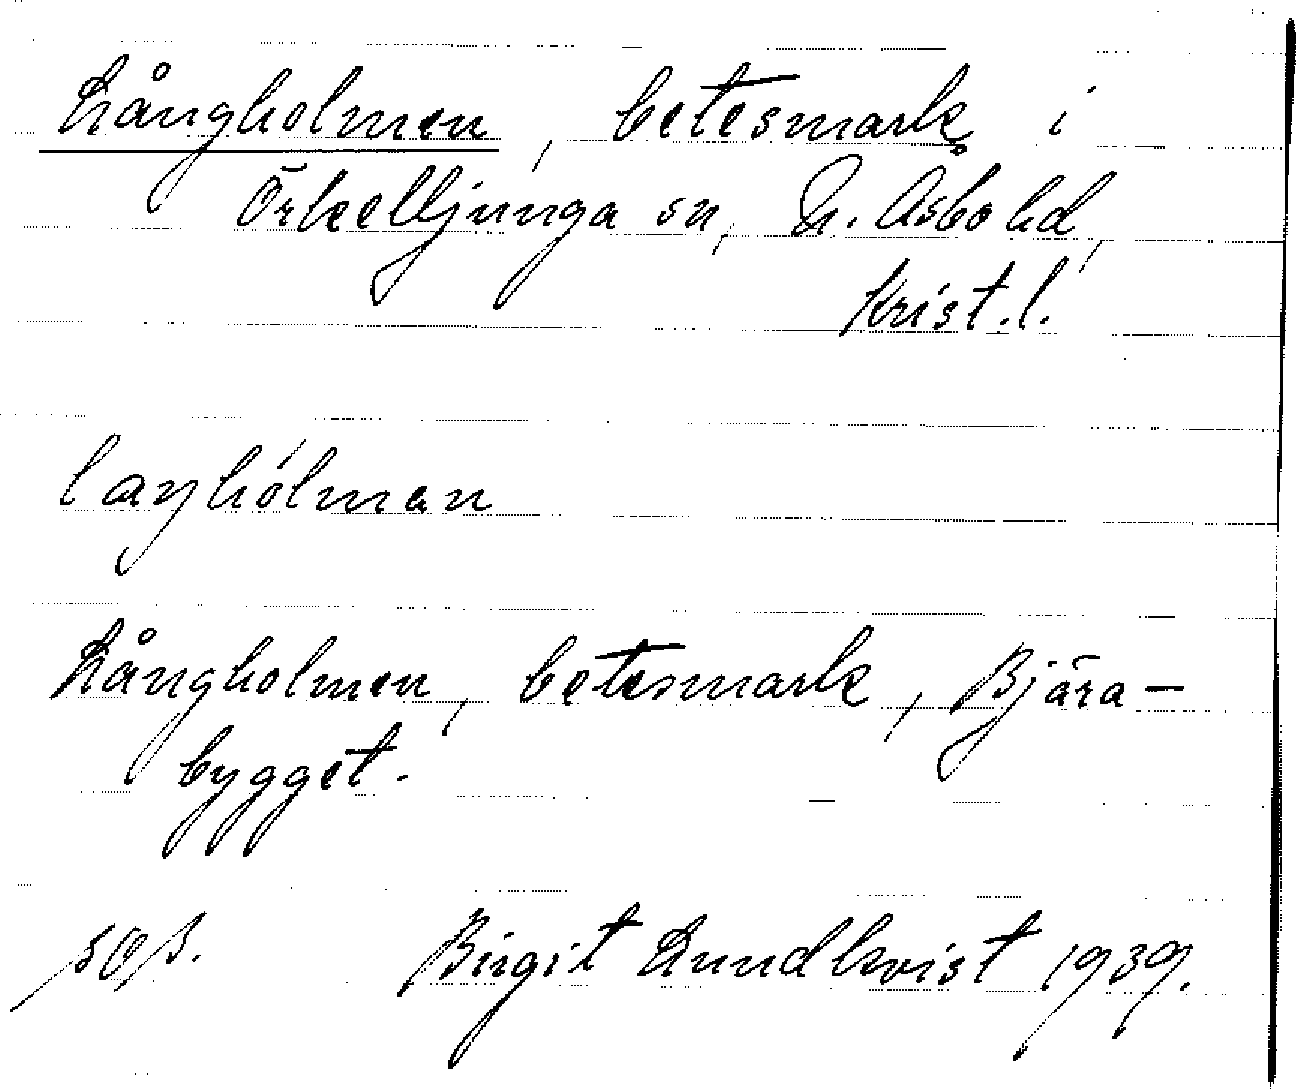 Långholmen, betesmark i
Örkelljunga sn, N. Åsbo hd,
Krist. l.
Långholmen, betesmark, Bjära-
bygget.
Birgit Lundkvist 1939.